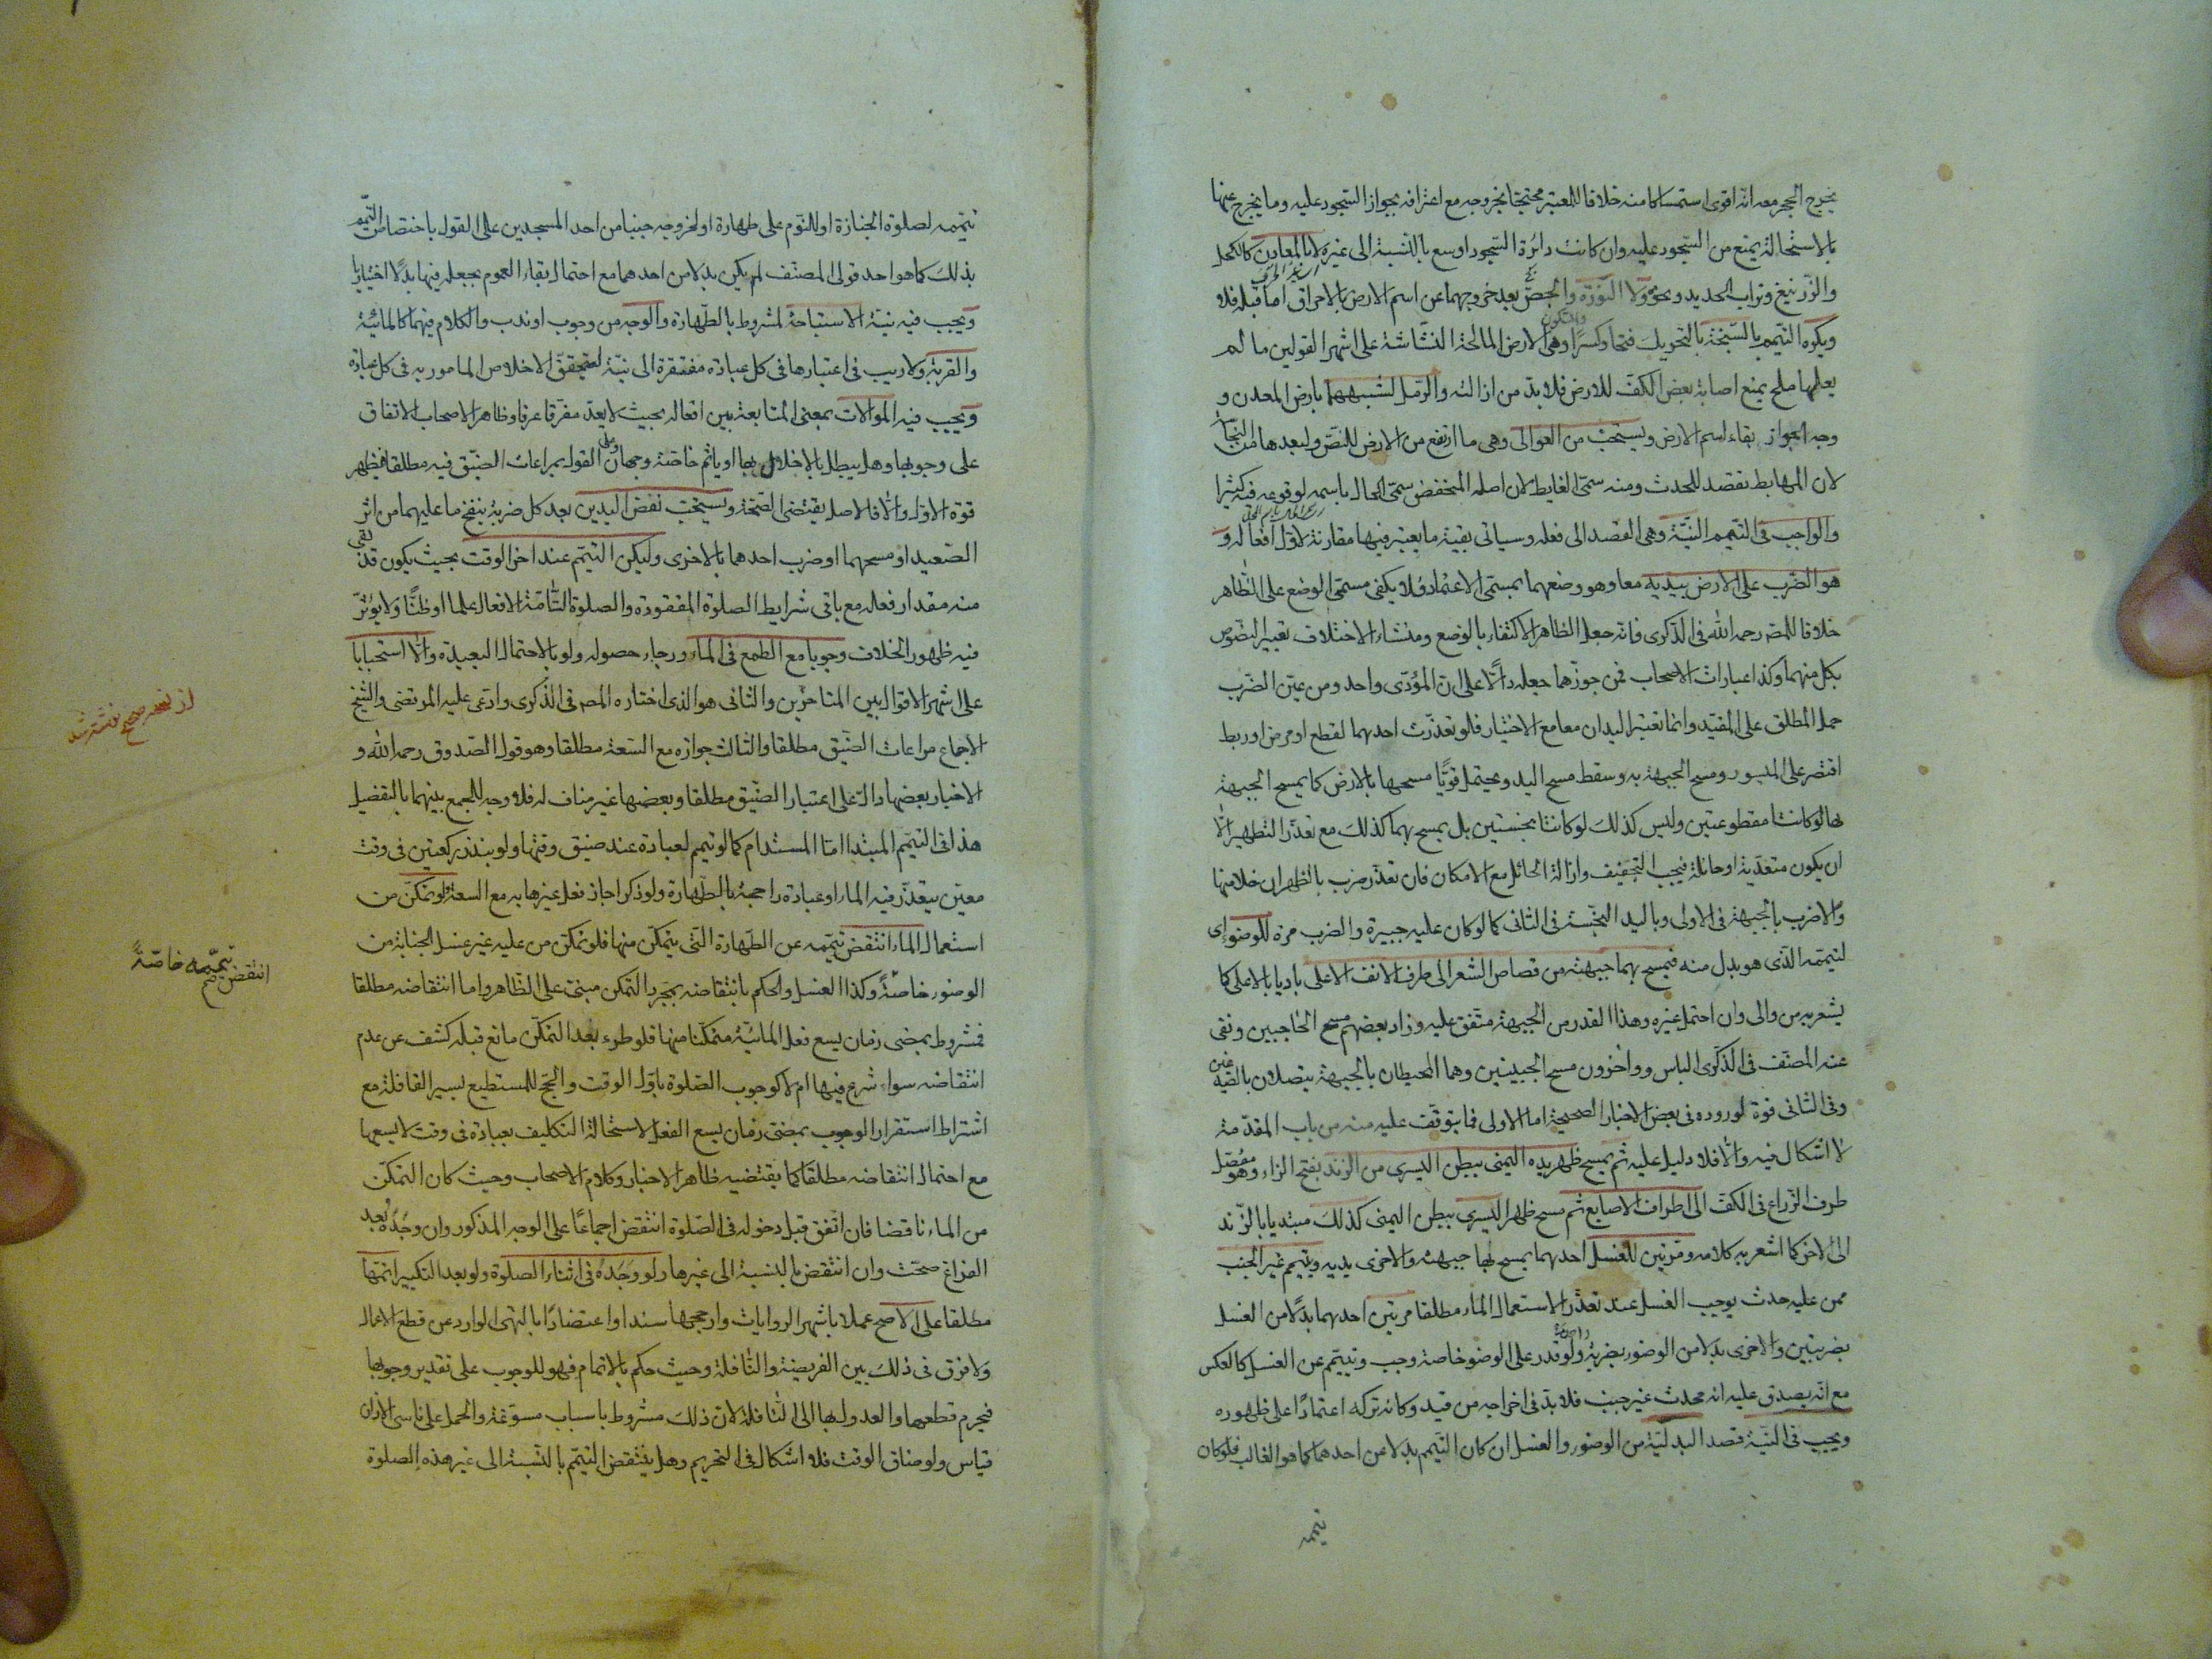 يخرج الحجر معه انه اقوى استمساكا منه خلافا للمعتبر محتجا بخروجه مع اعترافه بجواز السجود عليه وما يخرج عنها
بالاستحالة يمنع من السجود عليه وان كانت دائرة السجود اوسع بالنسبة الى غيره لا بالمعادن كالكحل
والزرنيخ وتراب الحديد ونحوه ولا النورة والجص بعد خروجهما عن اسم الارض بالاحراق اما قبله فلا
ويكره التيمم بالسبخة بالتحريك فتحا وكسرا والسكون وهى الارض المالحة النشاشة على اشهر القولين ما لم
يعلها ملح يمنع اصابة بعض الكف للارض فلا بد من ازالته والرمل لشبههما بارض المعدن و
وجه الجواز بقاء اسم الارض ويستحب من العوالى وهى ما ارتفع من الارض للنص ولبعدها من النجاسة
لان المهابط تقصد للحدث ومنه سمى الغايط لان اصله المنخفض سمى الحال باسمه لوقوعه فيه كثيرا
والواجب فى التيمم النية وهى القصد الى فعله وسياتى بقية ما يعتبر فيها مقارنة لاول افعاله و
هو الضرب على الارض بيديه معا وهو وضعهما بمسمى الاعتماد فلا يكفى مسمى الوضع على الظاهر
خلافا للمص رحمه الله فى الذكرى فانه جعل الظاهر الاكتفاء بالوضع ومنشاء الاختلاف تعبير النصوص
بكل منهما وكذا عبارات الاصحاب فمن جوزهما جعله دالا على ان المؤدى واحد ومن عين الضرب
حمل المطلق على المقيد وانما تعتبر اليدان معا مع الاختيار فلو تعذرت احدهما لقطع او مرض او ربط
اقتصر على الميسور ومسح الجبهة به وسقط مسح اليد ويحتمل قويا مسحها بالارض كما يمسح الجبهة
بها لو كانتا مقطوعتين وليس كذلك لو كانتا نجستين بل يمسح بهما كذلك مع تعذر التطهير الا
ان يكون متعدية او حائلة فيجب التجفيف وازالة الحائل مع الامكان فان تعذر ضرب بالظهر ان خلا منها
والا ضرب بالجبهة فى الاولى وباليد النجسة فى الثانى كما لو كان عليه جبيرة والضرب مرة للوضوء اى
لتيممه الذى هو بدل منه فيمسح بهما جبهته من قصاص الشعر الى طرف الانف الاعلى باديا بالاعلى كما
يشعر به من والى وان احتمل غيره وهذا القدر من الجبهة متفق عليه وزاد بعضهم مسح الحاجبين ونفى
عنه المصنف فى الذكرى الباس وواخرون مسح الجبينين وهما المحيطان بالجبهة يتصلان بالصدغين
وفى الثانى قوة لوروده فى بعض الاخبار الصحيحة اما الاولى فما يتوقف عليه منه من باب المقدمة
لا اشكال فيه والا فلا دليل عليه ثم يمسح ظهر يده اليمنى ببطن اليسرى من الزند بفتح الزاء وهو موصل
طرف الذراع فى الكف الى اطراف الاصابع ثم مسح ظهر اليسرى ببطن اليمنى كذلك مبتديا بالزند
الى الاخر كما اشعر به كلامه ومرتين للغسل احدهما يمسح بها جبهته والاخرى يديه ويتيمم غير الجنب
ممن عليه حدث يوجب الغسل عند تعذر الاستعمال الماء مطلقا مرتين احدهما بدلا من الغسل
بضربتين والاخرى بدلا من الوضوء بضربة واحدة ولو قدر على الوضوء خاصة وجب وتيمم عن الغسل كالعكس
مع انه يصدق عليه انه محدث غير جنب فلا بد فى اخراجه من قيد وكانه تركه اعتمادا على ظهوره
ويجب فى النية قصد البدلية من الوضوء والغسل ان كان التيمم بدلا عن احدهما كما هو الغالب فلو كان
تيممه
تيممه لصلوة الجنازة او للنوم على طهارة او لخروجه جنبا من احد المسجدين على القول باختصاص التيمم
بذلك كما هو احد قولى المصنف لم يكن بدلا من احدهما مع احتمال بقاء العموم بجعله فيها بدلا اختياريا
ويجب فيه نية الاستباحة لمشروط بالطهارة والوجه من وجوب او ندب والكلام فيهما كالمائية
والقربة ولا ريب فى اعتبارها فى كل عبادة مفتقرة الى نية لتحقق الاخلاص المامور به فى كل عبادة
ويجب فيه الموالات بمعنى المتابعة بين افعاله بحيث لا يعد مفرقا عرفا وظاهر الاصحاب الاتفاق
على وجوبها وهل يبطل بالاخلال بها او ياثم خاصة وجهان وعلى القول بمراعات الضيق فيه مطلقا فيظهر
قوة الاول والا فالاصل يقتضى الصحة ويستحب نفض اليدين بعد كل ضربة بنفخ ما عليهما من اثر
الصعيد او مسحهما او ضرب احدهما بالاخرى وليكن التيمم عند اخر الوقت بحيث يكون قد بقى
منه مقدار فعله مع باقى شرايط الصلوة المفقودة والصلوة التامة الافعال علما او ظنا ولا يؤثر
فيه ظهور الخلاف وجوبا مع الطمع فى الماء ورجاء حصوله ولو بالاحتمال البعيد والا استحبابا
على اشهر الاقوال بين المتاخرين والثانى هو الذى اختاره المص فى الذكرى وادعى عليه المرتضى والشيخ
الاجماع مراعات الضيق مطلقا والثالث جوازه مع السعة مطلقا وهو قول الصدوق رحمه الله و
الاخبار بعضها دال على اعتبار الضيق مطلقا وبعضها غير مناف له فلا وجه للجمع بينهما بالتفصيل
هذا فى التيمم المبتدا اما المستدام كما لو تيمم لعبادة عند ضيق وقتها ولو بنذر ركعتين فى وقت
معين يتعذر فيه الماء او عبادة راجحة بالطهارة ولو ذكر اجاز فعل غيرها به مع السعة ولو تمكن من
استعمال الماء انتقض تيممه عن الطهارة التى يتمكن منها فلو تمكن من عليه غير غسل الجنابة من
الوضوء خاصة وكذا الغسل والحكم بانتقاضه بمجرد التمكن مبنى على الظاهر واما انتقاضه مطلقا
فمشروط بمضى زمان يسع فعل المائية متمكنا منها فلو طرء بعد التمكن مانع قبله كشف عن عدم
انتقاضه سواء شرع فيها ام لا كوجوب الصلوة باول الوقت والحج للمستطيع بسير القافلة مع
اشتراط استقرار الوجوب بمضى زمان يسع الفعل لاستحالة التكليف بعبادة فى وقت لا يسعها
مع احتمال انتقاضه مطلقا كما يقتضيه ظاهر الاخبار وكلام الاصحاب وحيث كان التمكن
من الماء ناقضا فان اتفق قبل دخوله فى الصلوة انتقض اجماعا على الوجه المذكور وان وجده بعد
الفراغ صحت وان انتقض بالنسبة الى غيرها ولو وجده فى اثناء الصلوة ولو بعد التكبير اتمها
مطلقا على الاصح عملا باشهر الروايات وارجحها سندا واعتضادا بالنهى الوارد عن قطع الاعمال
ولا فرق فى ذلك بين الفريضة والنافلة وحيث حكم بالاتمام فهو للوجوب على تقدير وجوبها
فيحرم قطعها والعدول بها الى النافلة لان ذلك مشروط باسباب مسوغة والحمل على ناسى الاذان
قياس ولو ضاق الوقت فلا اشكال فى التحريم وهل ينتقض التيمم بالنسبة الى غير هذه الصلوة
از نسخه صحيح نوشته شد
انتقض تيممه خاصة
صح